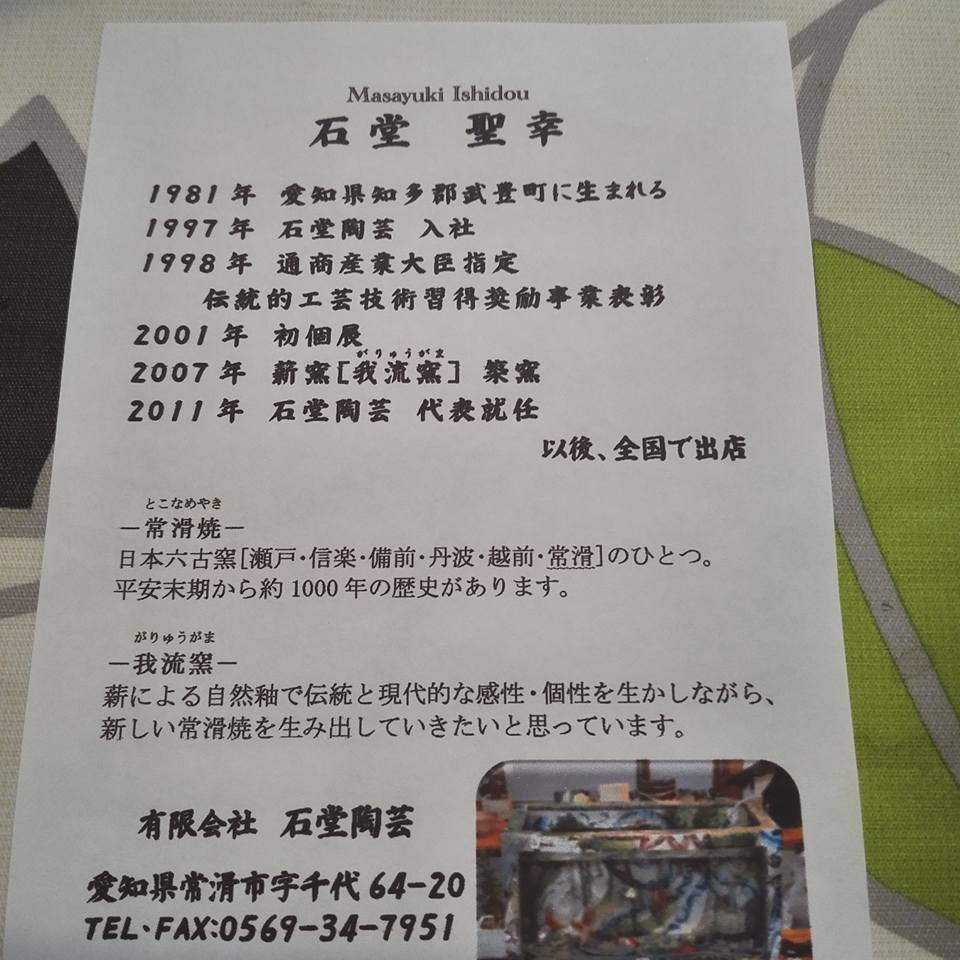 Masayuki Ishidou
石堂 聖幸
1981年 愛知県知多郡武豊町に生まれる
1997年 石堂陶芸 入社
1998年 通商産業大臣指定
伝統的工芸技術習得奨励事業表彰
2001年 初個展
がりゅうがま
2007年 薪窯[我流窯] 築窯
2011年 石堂陶芸 代表就任
以後、全国で出店
とこなめやき
－常滑焼－
日本六古窯[瀬戸・信楽・備前・丹波・越前・常滑]のひとつ。
平安末期から約1000年の歴史があります。
がりゅうがま
－我流窯－
薪による自然釉で伝統と現代的な感性・個性を生かしながら、
新しい常滑焼を生み出していきたいと思っています。
有限会社 石堂陶芸
愛知県常滑市字千代64-20
TEL・FAX:0569-34-7951